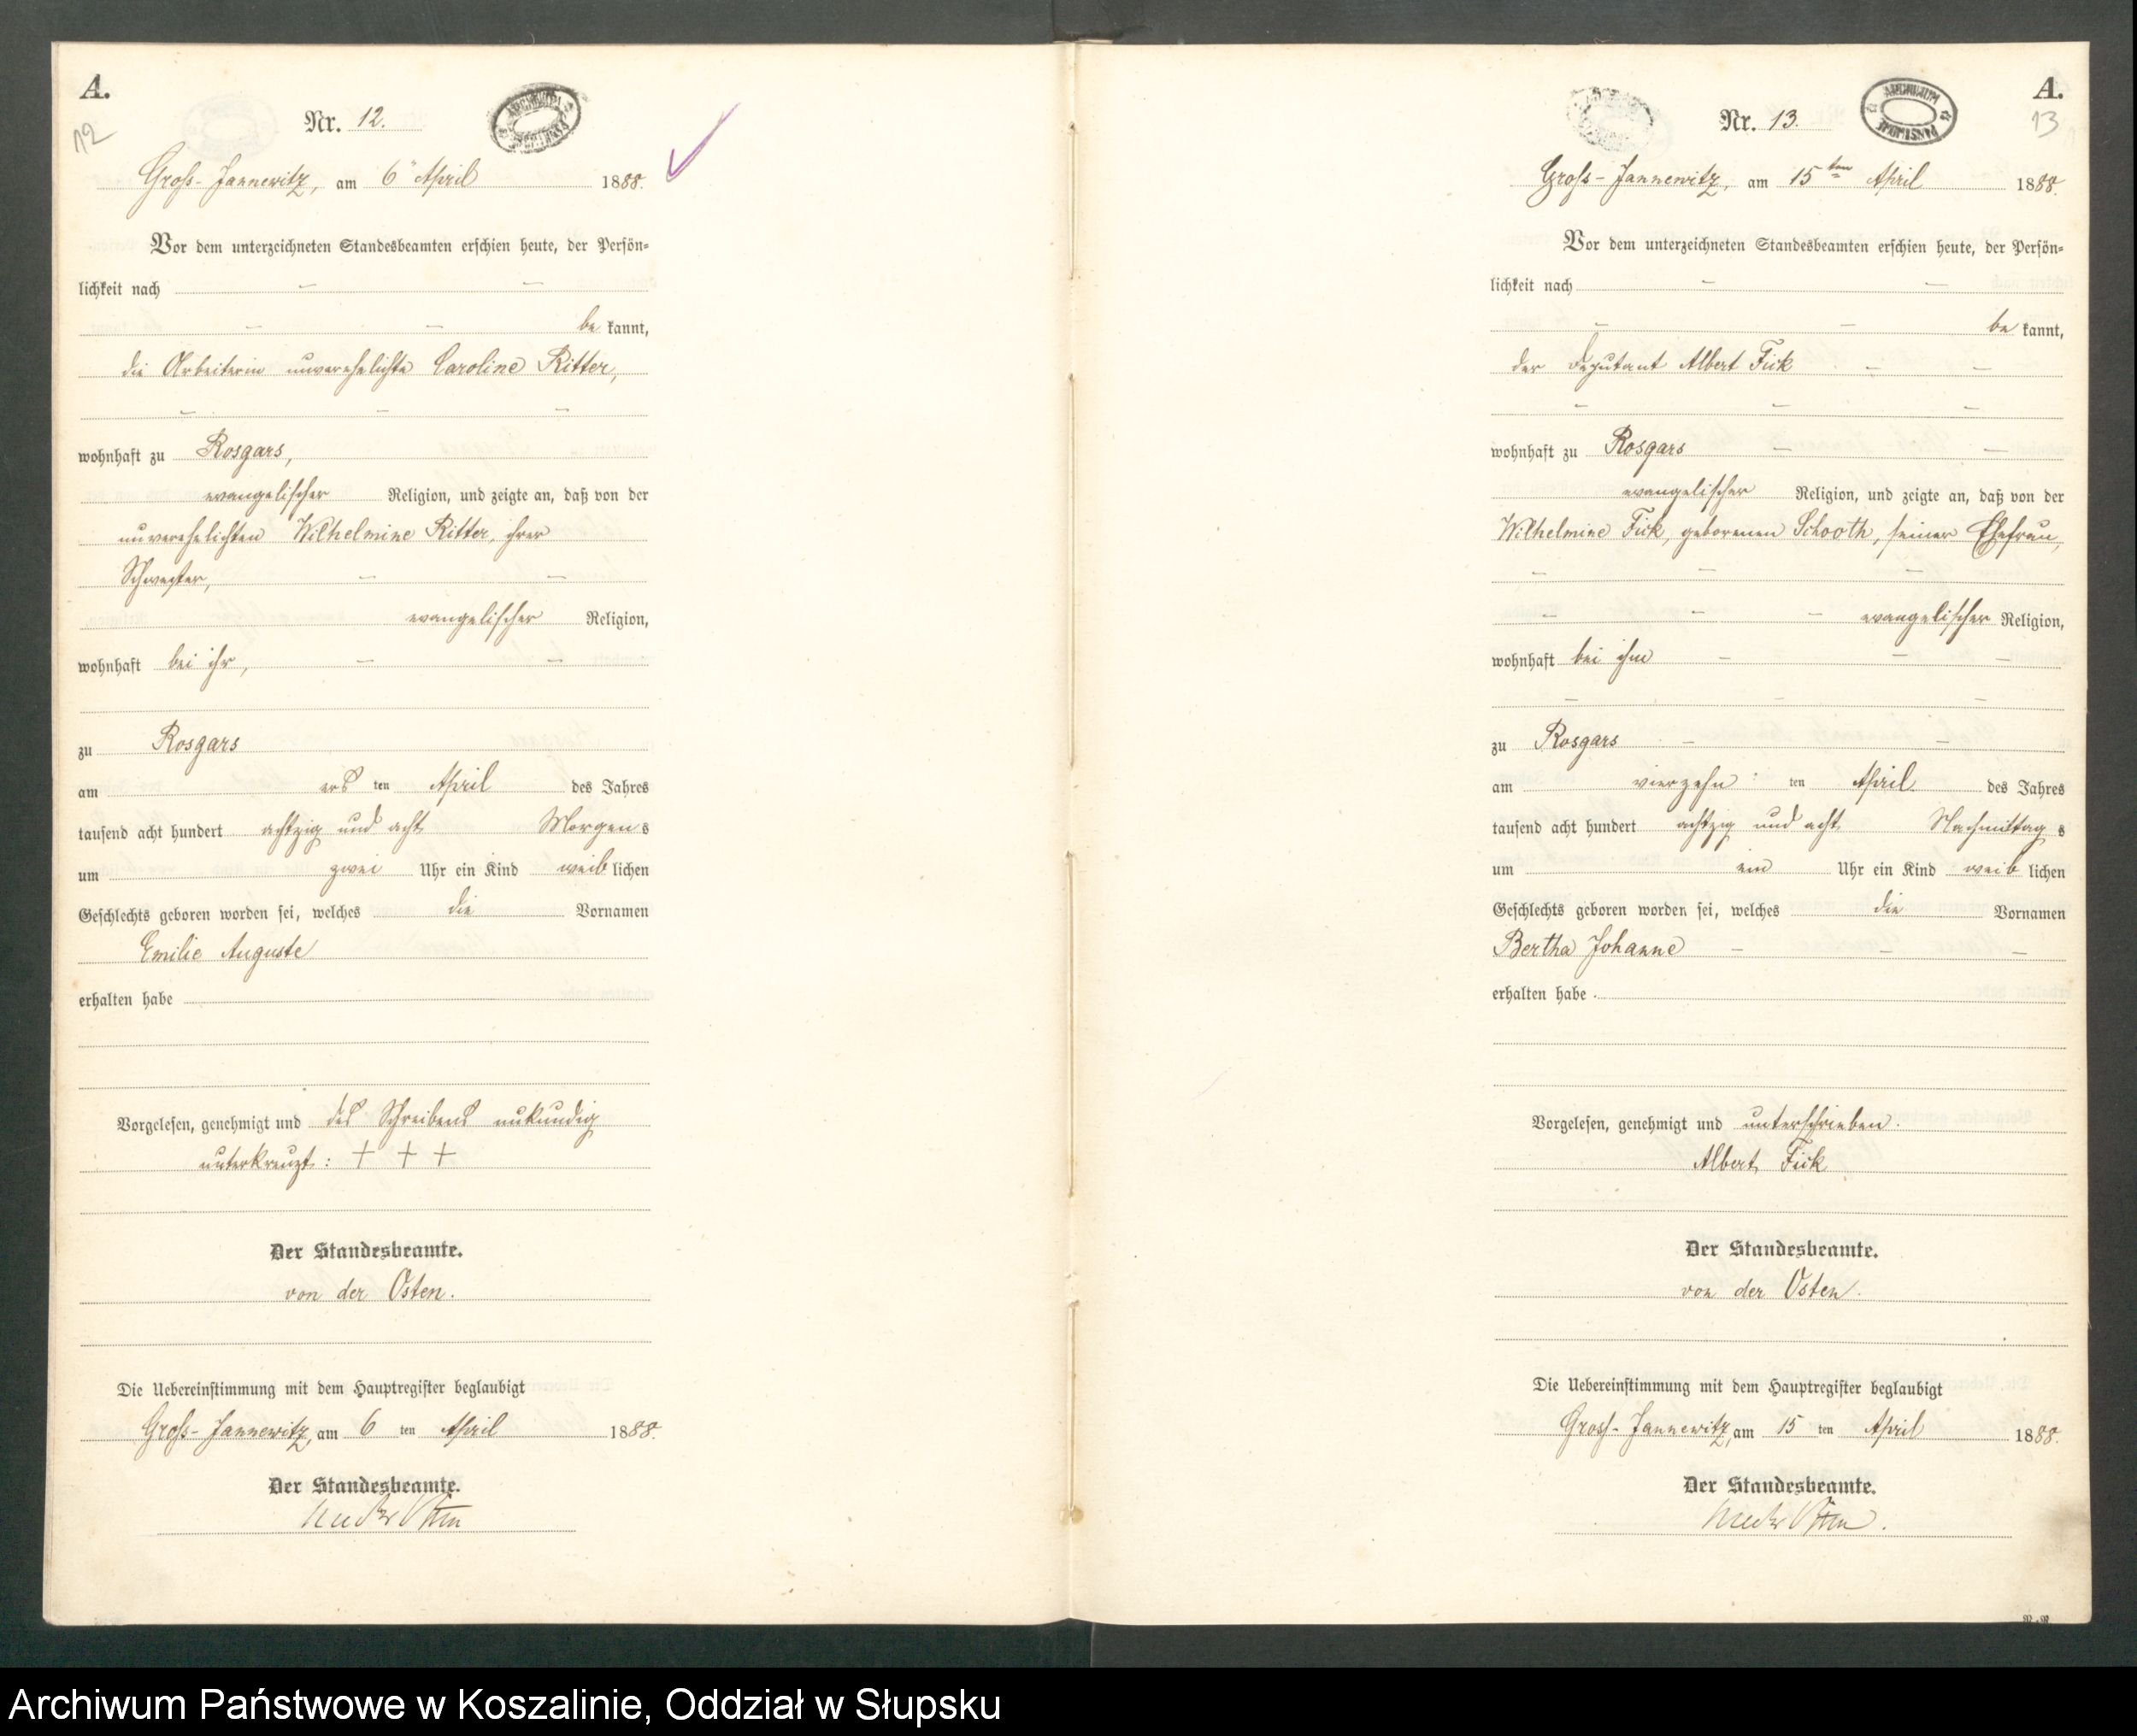 A.
12
Nr. 12.
ARCHIWUM PAŃSTWOWE
Gross-Jannewitz, am 6ⁿ April 1888.
Vor dem unterzeichneten Standesbeamten erschien heute, der Persön-
lichkeit nach — —
— — be kannt,
die Arbeiterin unverehelichte Caroline Ritter,
— — —
wohnhaft zu Rosgars,
evangelischer Religion, und zeigte an, daß von der
unverehelichten Wilhelmine Ritter, ihrer
Schwester, — —
evangelischer Religion,
wohnhaft bei ihr, — —
zu Rosgars
am ers ten April des Jahres
tausend acht hundert achtzig und acht Morgen s
um zwei Uhr ein Kind weib lichen
Geschlechts geboren worden sei, welches die Vornamen
Emilie Auguste
erhalten habe
Vorgelesen, genehmigt und des Schreibens unkundig
unterkreuzt: + + +
Der Standesbeamte.
von der Osten.
Die Uebereinstimmung mit dem Hauptregister beglaubigt
Gross-Jannewitz, am 6 ten April 1888.
Der Standesbeamte.
von der Osten
A.
13
Nr. 13.
ARCHIWUM PAŃSTWOWE
Gross-Jannewitz, am 15ten April 1888.
Vor dem unterzeichneten Standesbeamten erschien heute, der Persön-
lichkeit nach — —
— — be kannt,
der Deputant Albert Fick — —
— — —
wohnhaft zu Rosgars — —
evangelischer Religion, und zeigte an, daß von der
Wilhelmine Fick, geborenen Schooth, seiner Ehefrau,
— — —
— — — evangelischer Religion,
wohnhaft bei ihm — — —
— — —
zu Rosgars — —
am vierzehn : ten April des Jahres
tausend acht hundert achtzig und acht Nachmittag s
um ein Uhr ein Kind weib lichen
Geschlechts geboren worden sei, welches die Vornamen
Bertha Johanne — — —
erhalten habe .
Vorgelesen, genehmigt und unterschrieben.
Albert Fick
Der Standesbeamte.
von der Osten.
Die Uebereinstimmung mit dem Hauptregister beglaubigt
Gross-Jannewitz, am 15 ten April 1888.
Der Standesbeamte.
von der Osten.
Archiwum Państwowe w Koszalinie, Oddział w Słupsku